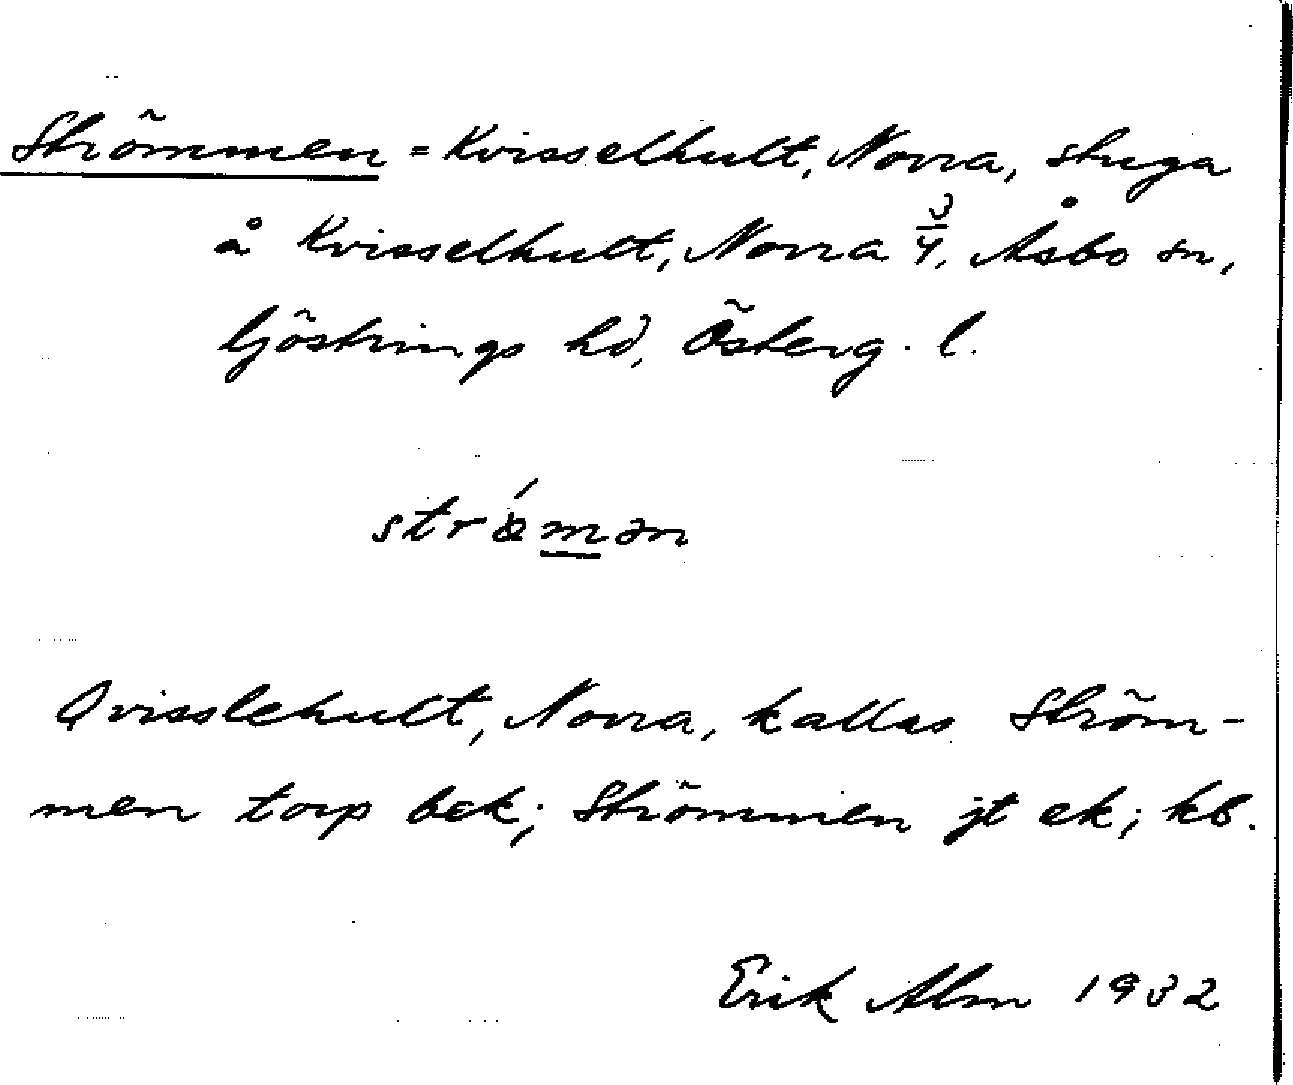 Strömmen = Kvisselhult, Norra, stuga
å Kvisselhult, Norra 3/4, Åsbo sn,
Göstrings hd, Österg. l.
strǿmən
Qvisslehult, Norra, kallas Ström-
men torp bek; Strömmen jt ek; kb.
Erik Alm 1932